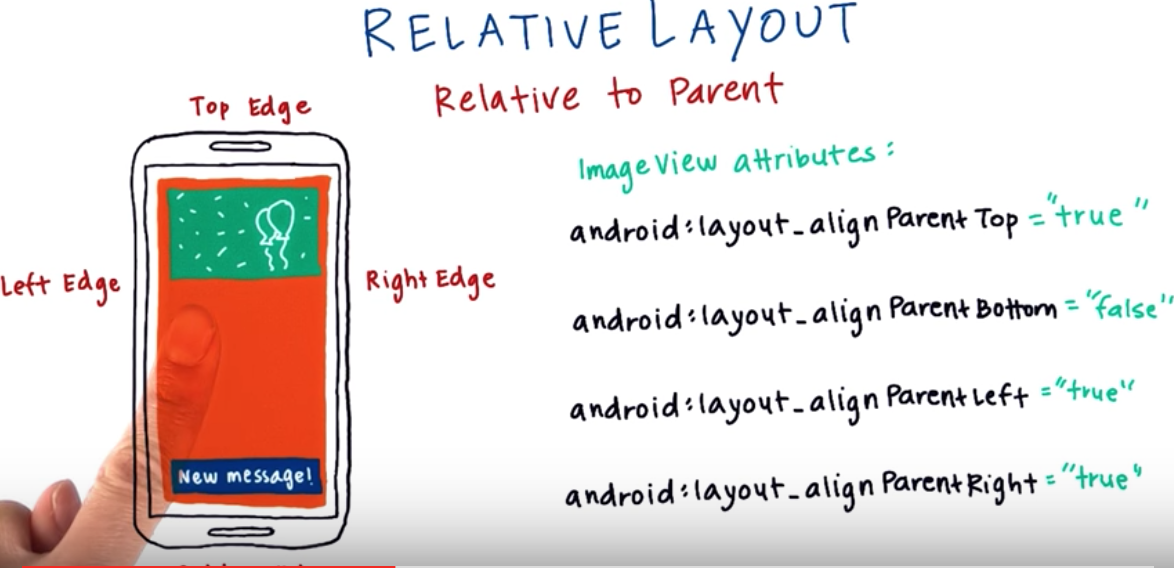 RELATIVE LAYOUT
Relative to Parent
Top Edge
Left Edge
Right Edge
New message!
ImageView attributes:
android:layout_alignParentTop="true"
android:layout_alignParentBottom="false"
android:layout_alignParentLeft="true"
android:layout_alignParentRight="true"